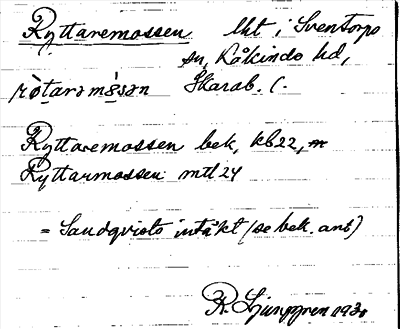 Ryttaremossen lht i Sventorps
sn, Kåkinds hd,
rò̤tarə mò̤sən Skarab. l.
Ryttaremossen bek, kb 22, m
Ryttarmossen mtl 24
= Sandqvists intäkt (se bek. ant)
R. Ljunggren 1930